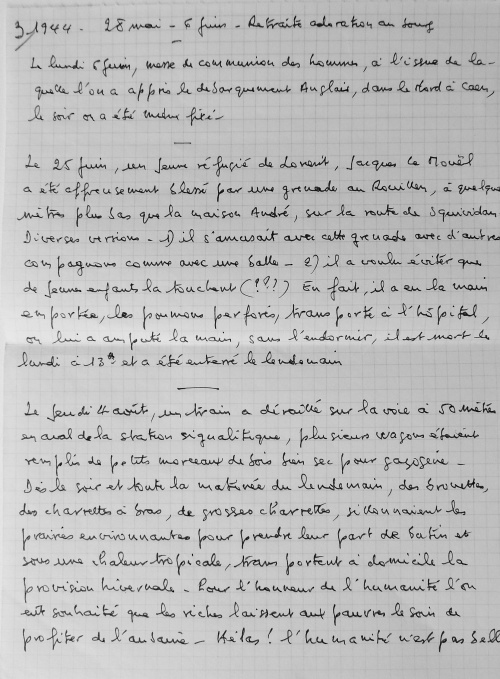 3/1944 - 28 mai - 6 juin - Retraite adoration au bourg
Le lundi 5 juin, messe de communion des hommes, à l'issue de la-
quelle l'on a appris le débarquement Anglais, dans le Nord à Caen,
le soir on a été mieux fixé -
Le 25 juin, un jeune réfugié de Lorient, Jacques Le Mouël
a été affreusement blessé par une grenade au Rouillen, à quelques
mètres plus bas que la maison André, sur la route de Squividan
Diverses versions - 1) il s'amusait avec cette grenade avec d'autres
compagnons comme avec une balle - 2) il a voulu éviter que
de jeunes enfants la touchent (???) En fait, il a eu la main
emportée, les poumons perforés, transporté à l'hôpital,
on lui a amputé la main, sans l'endormir, il est mort le
lundi à 13h et a été enterré le lendemain
Le jeudi 4 août, un train a déraillé sur la voie à 50 mètres
en aval de la station signalitique, plusieurs wagons étaient
remplis de petits morceaux de bois bien sec pour gazogène -
Dès le soir et toute la matinée du lendemain, des brouettes,
des charrettes à bras, de grosses charrettes, sillonnaient les
prairies environnantes pour prendre leur part de butin et
sous une chaleur tropicale, transportent à domicile la
provision hivernale - Pour l'honneur de l'humanité l'on
eut souhaité que les riches laissent aux pauvres le soin de
profiter de l'aubaine - Hélas ! l'humanité n'est pas belle